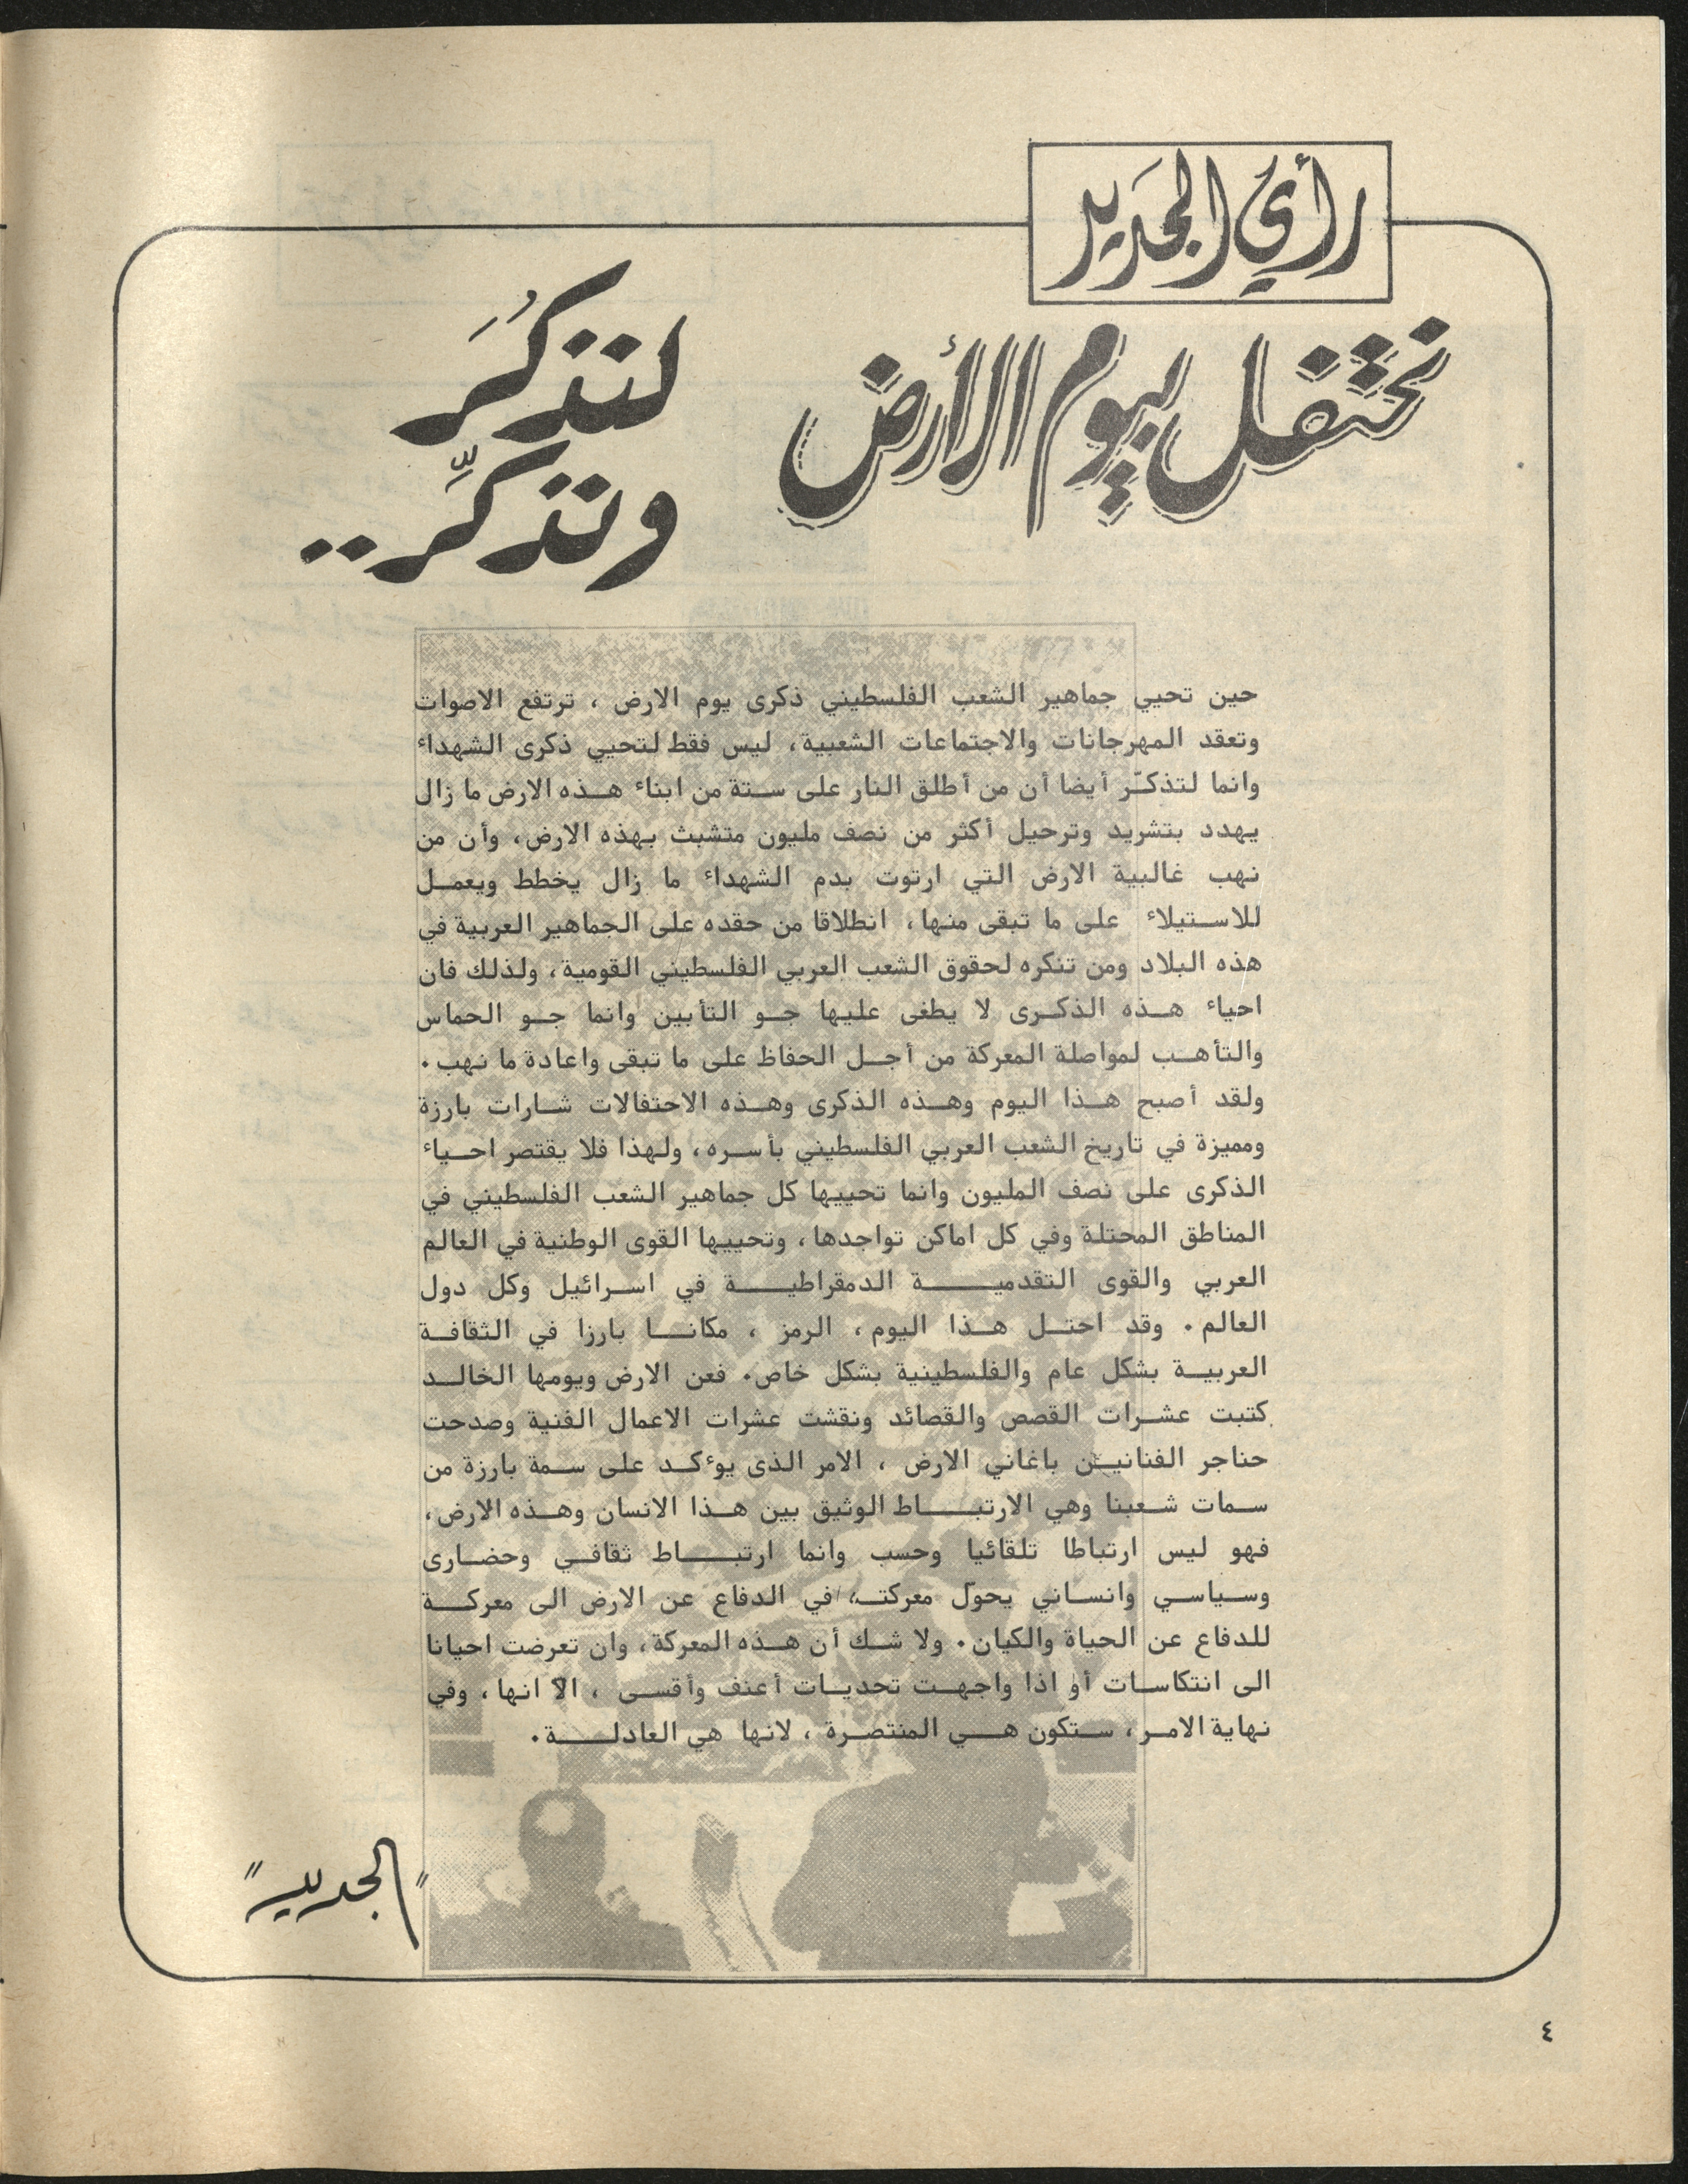 رأي الجديد
نحتفل بيوم الأرض
لنذكُرَ
ونذكِّر..
حين تحيي جماهير الشعب الفلسطيني ذكرى يوم الارض ، ترتفع الاصوات
وتعقد المهرجانات والاجتماعات الشعبية، ليس فقط لتحيي ذكرى الشهداء
وانما لتذكّر أيضا أن من أطلق النار على ستة من ابناء هذه الارض ما زال
يهدد بتشريد وترحيل أكثر من نصف مليون متشبث بهذه الارض، وأن من
نهب غالبية الارض التي ارتوت بدم الشهداء ما زال يخطط ويعمل
للاستيلاء على ما تبقى منها، انطلاقا من حقده على الجماهير العربية في
هذه البلاد ومن تنكره لحقوق الشعب العربي الفلسطيني القومية، ولذلك فان
احياء هذه الذكرى لا يطغى عليها جو التأبين وانما جو الحماس
والتأهب لمواصلة المعركة من أجل الحفاظ على ما تبقى واعادة ما نهب.
ولقد أصبح هذا اليوم وهذه الذكرى وهذه الاحتفالات شارات بارزة
ومميزة في تاريخ الشعب العربي الفلسطيني بأسره، ولهذا فلا يقتصر احياء
الذكرى على نصف المليون وانما تحييها كل جماهير الشعب الفلسطيني في
المناطق المحتلة وفي كل اماكن تواجدها، وتحييها القوى الوطنية في العالم
العربي والقوى التقدمية الدمقراطية في اسرائيل وكل دول
العالم. وقد احتل هذا اليوم، الرمز ، مكانا بارزا في الثقافة
العربية بشكل عام والفلسطينية بشكل خاص. فعن الارض ويومها الخالد
كتبت عشرات القصص والقصائد ونقشت عشرات الاعمال الفنية وصدحت
حناجر الفنانين باغاني الارض ، الامر الذى يوءكد على سمة بارزة من
سمات شعبنا وهي الارتباط الوثيق بين هذا الانسان وهذه الارض،
فهو ليس ارتباطا تلقائيا وحسب وانما ارتباط ثقافي وحضارى
وسياسي وانساني يحوّل معركته في الدفاع عن الارض الى معركة
للدفاع عن الحياة والكيان. ولا شك أن هذه المعركة، وان تعرضت احيانا
الى انتكاسات أو اذا واجهت تحديات أعنف وأقسى ، الاّ انها، وفي
نهاية الامر، ستكون هي المنتصرة ، لانها هي العادلة.
"الجديد"
٤